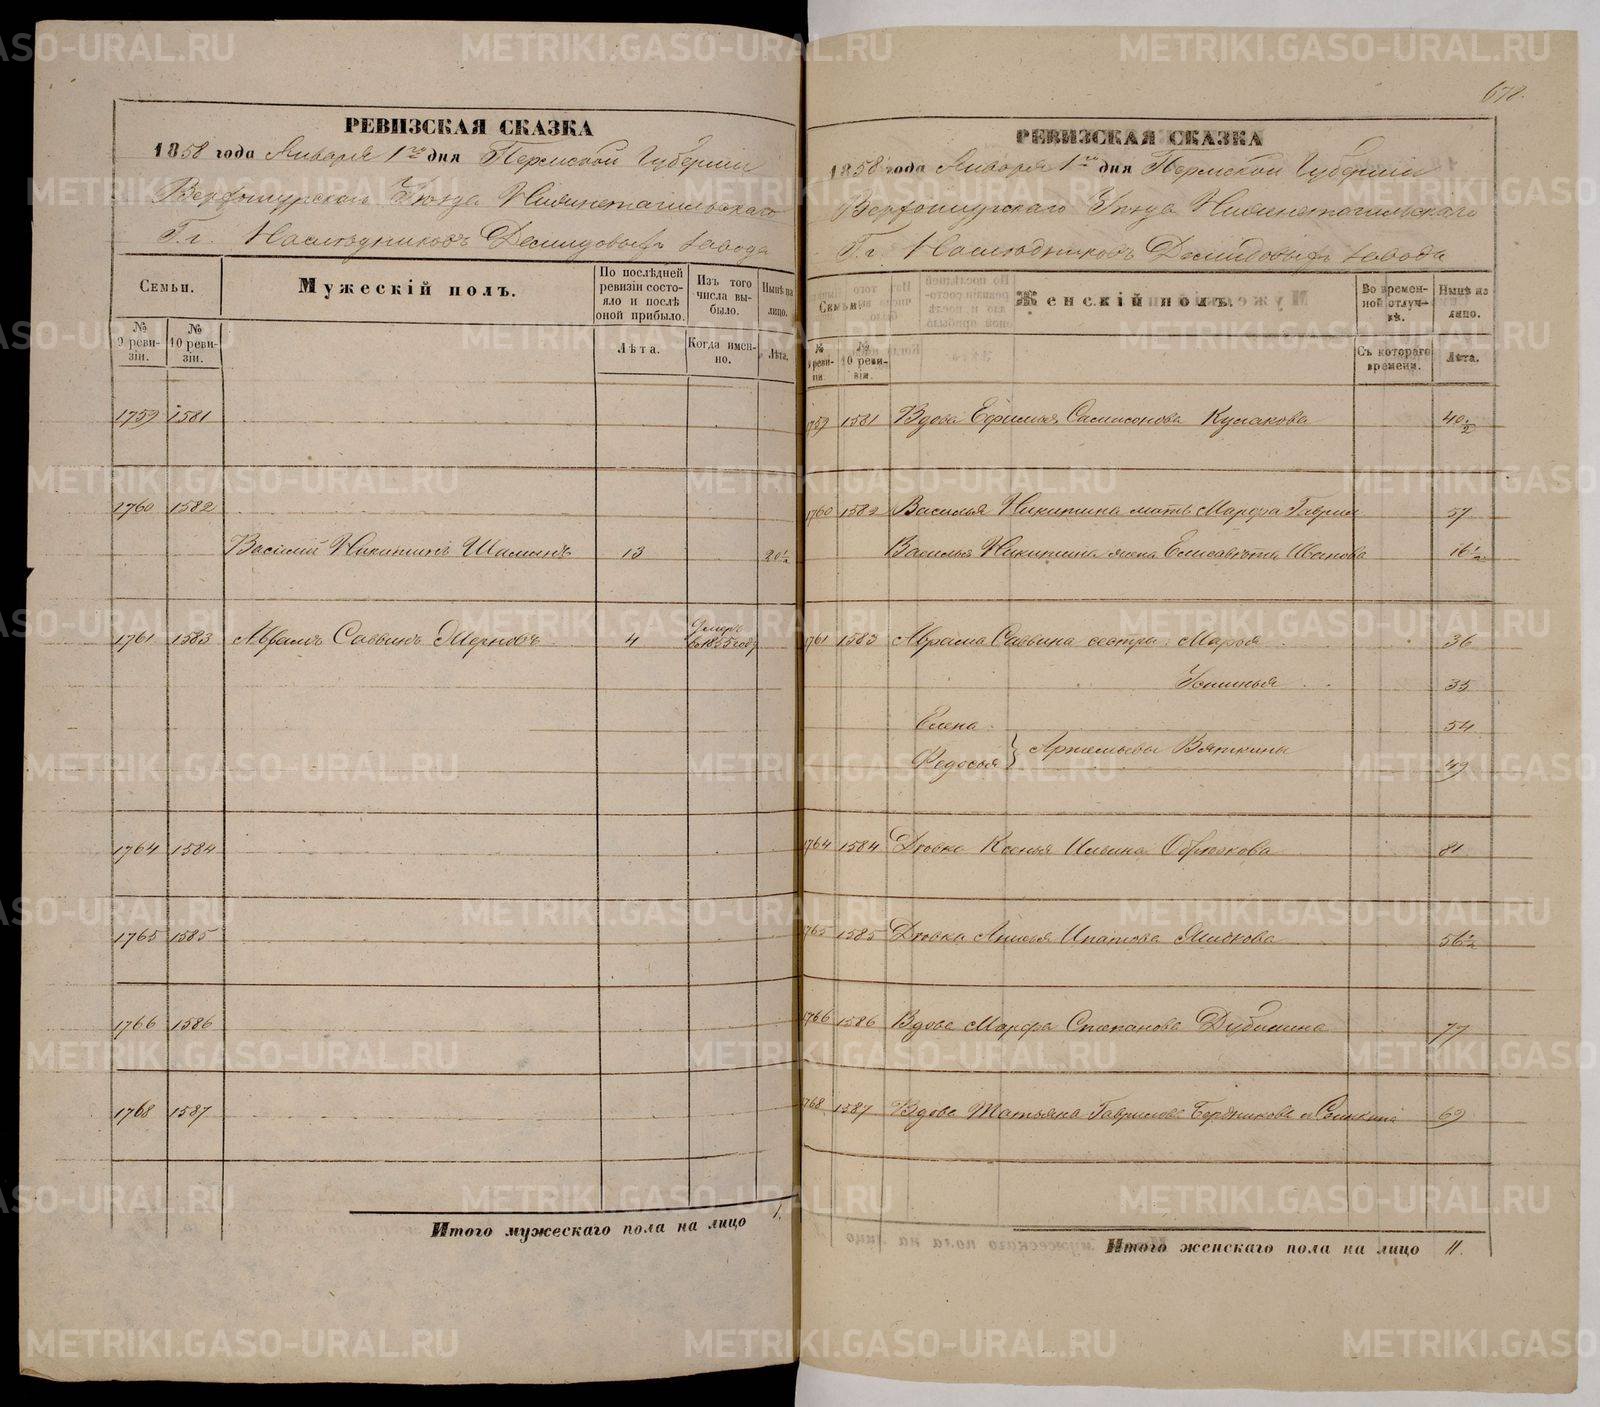 РЕВИЗСКАЯ СКАЗКА
1858 года Января 1го дня Пермской Губернiи
Верхотурскаго Уѣзда Нижнетагильскаго
Г.г. Наслѣдниковъ Демидовыхъ завода
Семьи.
Мужескiй полъ.
По послѣдней ревизiи состояло и послѣ оной прибыло.
Изъ того числа выбыло.
Нынѣ на лицо.
№ 9 ревизiи.
№ 10 ревизiи.
Лѣта.
Когда именно.
Лѣта.
1759 1581
1760 1582
Василiй Никитинъ 13 20½
1761 1583 Аврамъ Саввинъ 4 Умеръ въ 1855 году
1764 1584
1765 1585
1766 1586
1768 1587
Итого мужескаго пола на лицо 1.
678.
РЕВИЗСКАЯ СКАЗКА
1858 года Января 1го дня Пермской Губернiи
Верхотурскаго Уѣзда Нижнетагильскаго
Г.г. Наслѣдниковъ Демидовыхъ завода
Семьи.
Женскiй полъ.
Во временной отлучкѣ.
Нынѣ на лицо.
№ 9 ревизiи.
№ 10 ревизiи.
Съ котораго времени.
Лѣта.
1759 1581 Вдова Ефимья Самсонова Кулакова 40½
1760 1582 Василья Никитина мать Марфа 57
Василья Никитина жена Елисавѣта Иванова 16½
1761 1583 Аврама Саввина сестра Марья 36
Устинья 35
Елена 54
Федосья } Артемьевы Вяткины 49
1764 1584 Дѣвка Ксенья 81
1765 1585 Дѣвка Ипатова 56½
1766 1586 Вдова Марфа Степанова Дубинина 77
1768 1587 Вдова Татьяна Гаврилова Бердникова 69
Итого женскаго пола на лицо 11.
METRIKI.GASO-URAL.RU